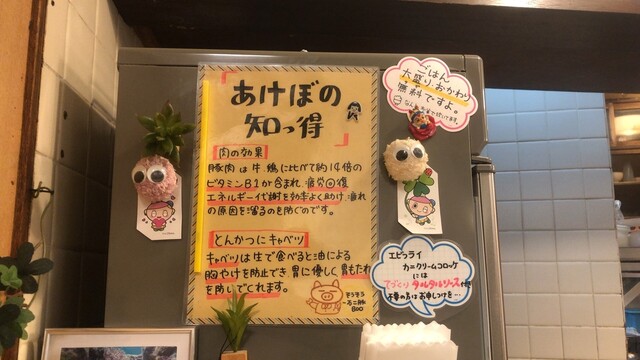 あけぼの
知っ得
肉の効果
豚肉は牛、鶏に比べて約14倍の
ビタミンB1が含まれ疲労回復
エネルギー代謝を効率よく助け疲れ
の原因を溜るのを防ぐのです。
とんかつにキャベツ
キャベツは生で食べると油による
胸やけを防止でき胃に優しく胃もたれ
を防いでくれます。
ごはん
大盛り、おかわり
無料ですよ。
エビフライ
カニクリームコロッケ
には
てづくりタルタルソース付
不要の方はお申しつけを…